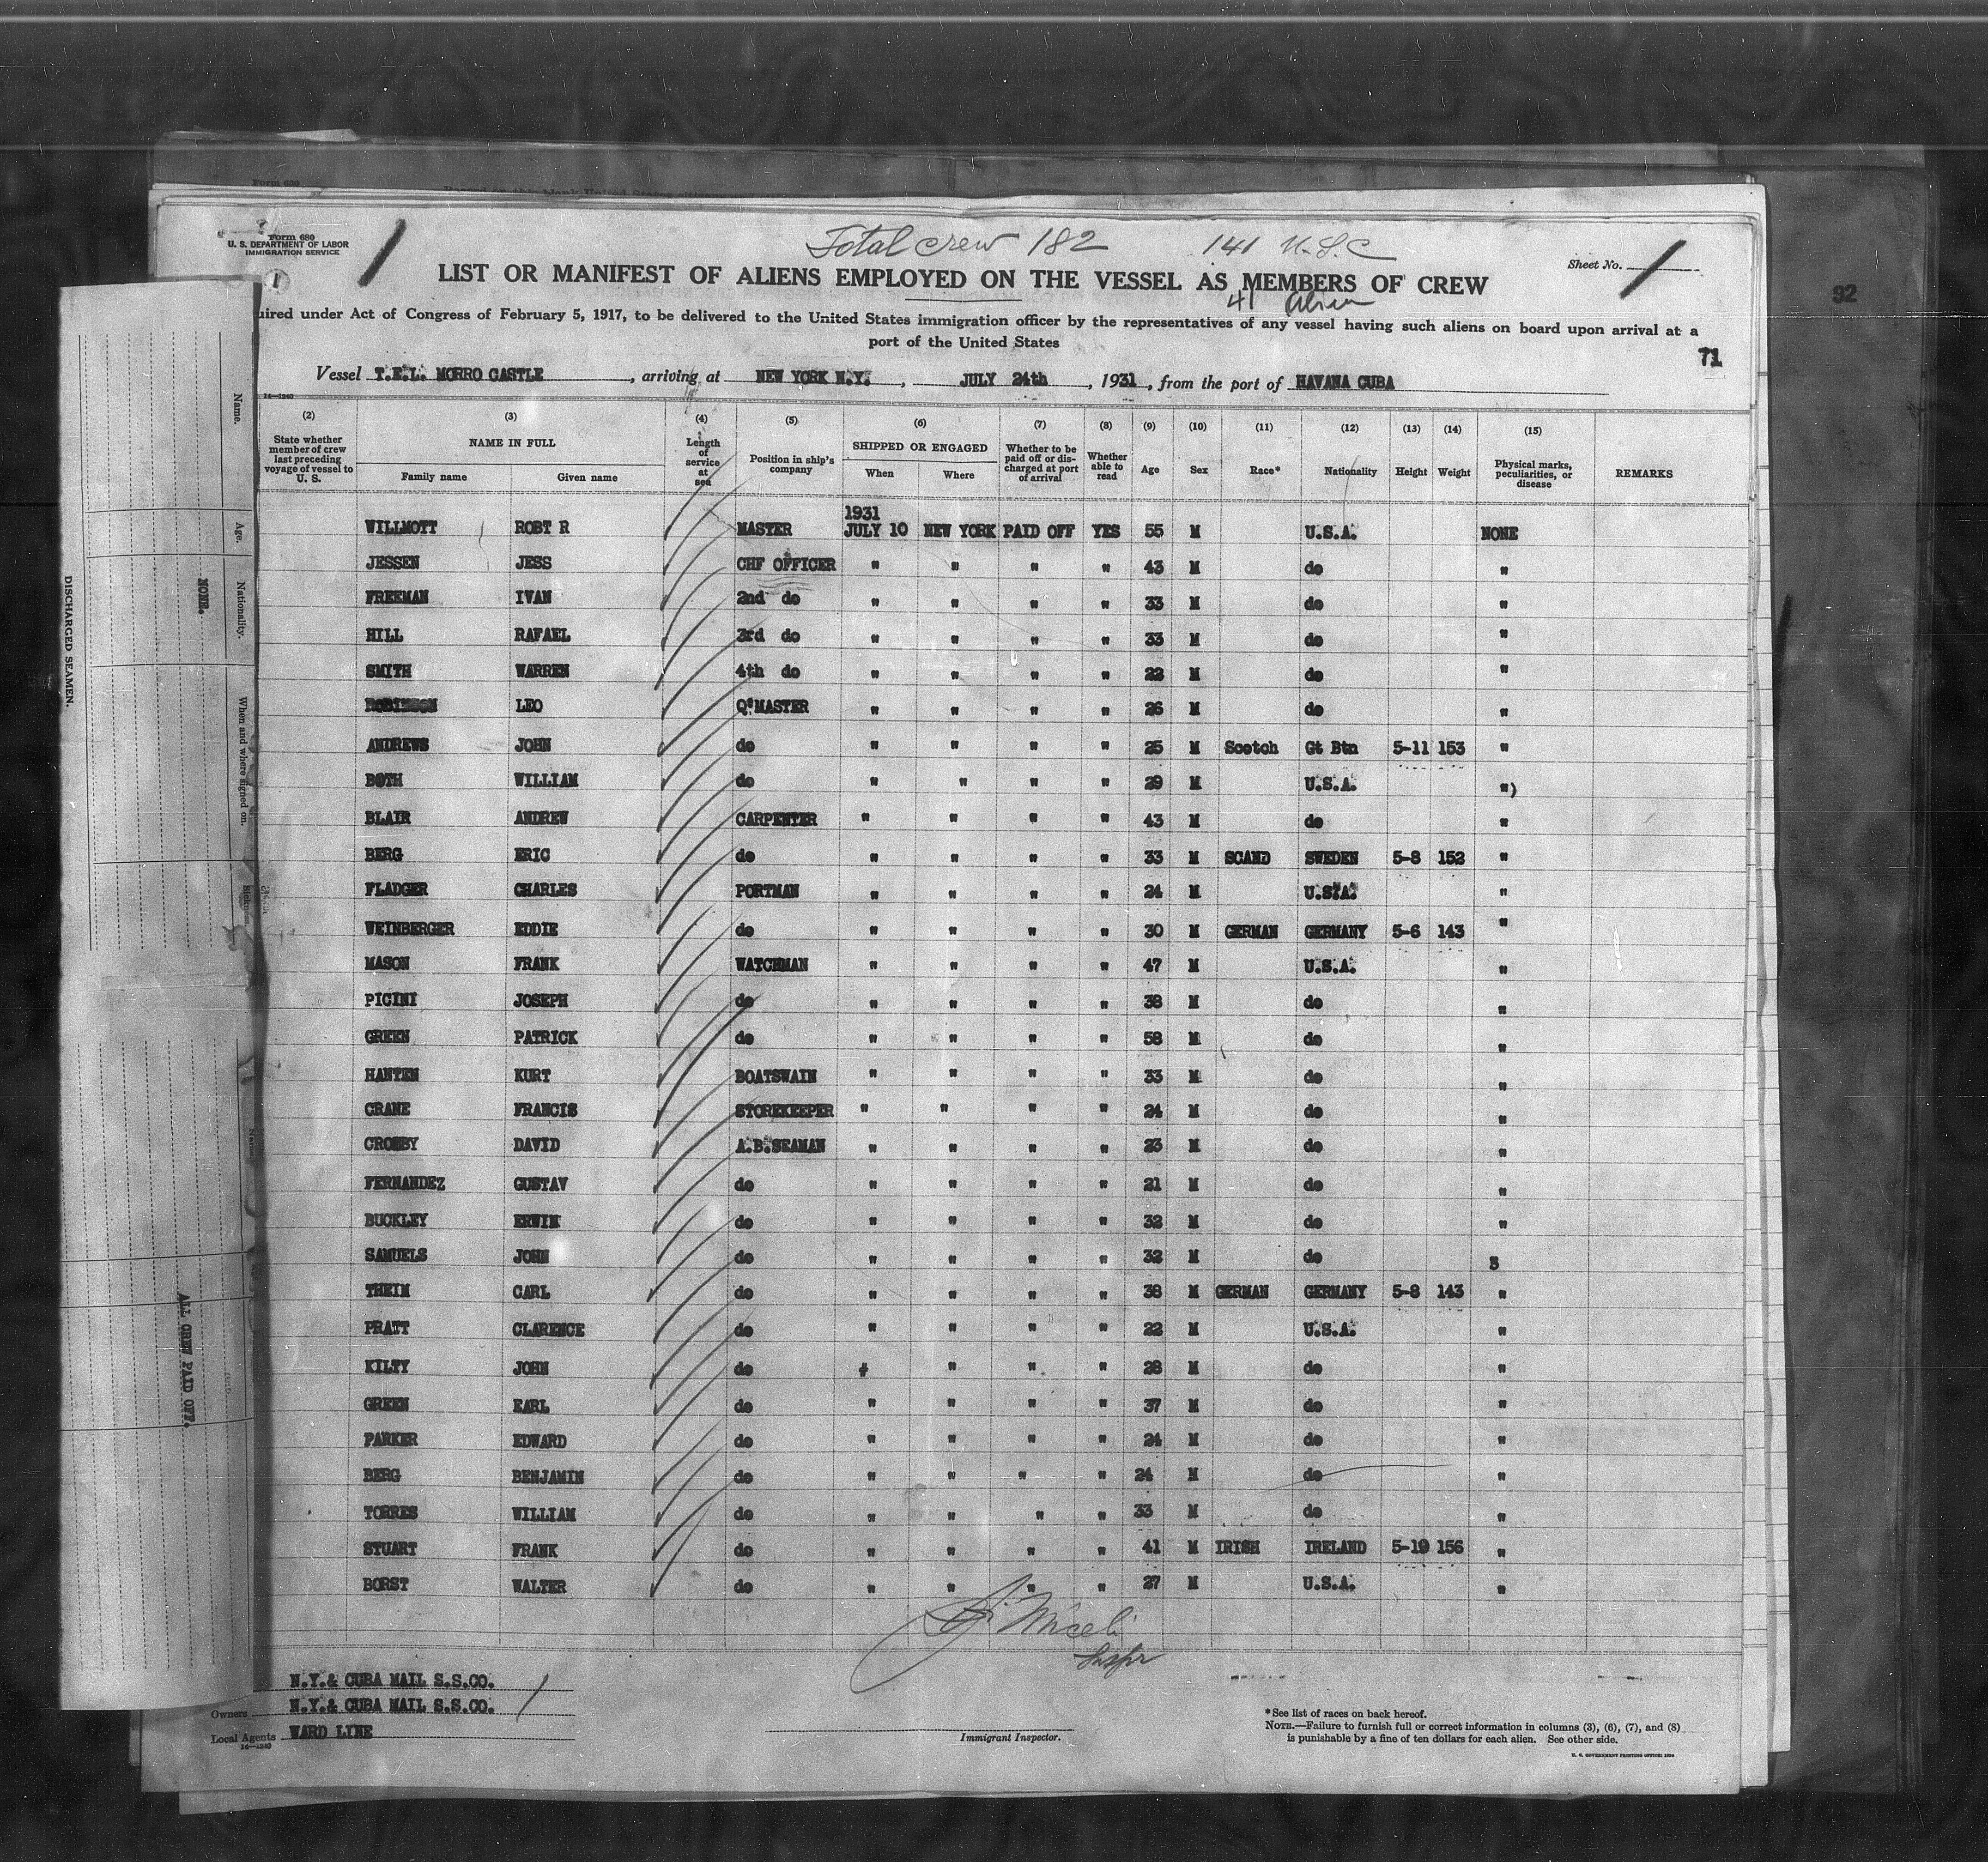 Form 680
U. S. DEPARTMENT OF LABOR
IMMIGRATION SERVICE
Total crew 182 141 U.S.C
41 Alien
Sheet No. 1
LIST OR MANIFEST OF ALIENS EMPLOYED ON THE VESSEL AS MEMBERS OF CREW
uired under Act of Congress of February 5, 1917, to be delivered to the United States immigration officer by the representatives of any vessel having such aliens on board upon arrival at a
port of the United States
92
71
Vessel T.E.L. MORRO CASTLE, arriving at NEW YORK N.Y., JULY 24th, 1931, from the port of HAVANA CUBA
14—1240
(2) (3) (4) (5) (6) (7) (8) (9) (10) (11) (12) (13) (14) (15)
State whether member of crew last preceding voyage of vessel to U. S.
NAME IN FULL
Family name Given name
Length of service at sea
Position in ship's company
SHIPPED OR ENGAGED
When Where
Whether to be paid off or discharged at port of arrival
Whether able to read
Age Sex Race* Nationality Height Weight
Physical marks, peculiarities, or disease
REMARKS
1931
WILLMOTT ROBT R MASTER JULY 10 NEW YORK PAID OFF YES 55 M U.S.A. NONE
JESSEN JESS CHF OFFICER " " " " 43 M do "
FREEMAN IVAN 2nd do " " " " 33 M do "
HILL RAFAEL 3rd do " " " " 33 M do "
SMITH WARREN 4th do " " " " 22 M do "
ROBINSON LEO Q'MASTER " " " " 26 M do "
ANDREWS JOHN do " " " " 25 M Scotch Gt Btn 5-11 153 "
BOTH WILLIAM do " " " " 29 M U.S.A. ")
BLAIR ANDREW CARPENTER " " " " 43 M do "
BERG ERIC do " " " " 33 M SCAND SWEDEN 5-8 152 "
FLADGER CHARLES PORTMAN " " " " 24 M U.S.A. "
WEINBERGER EDDIE do " " " " 30 M GERMAN GERMANY 5-6 143 "
MASON FRANK WATCHMAN " " " " 47 M U.S.A. "
PICINI JOSEPH do " " " " 38 M do "
GREEN PATRICK do " " " " 58 M do "
HANTEN KURT BOATSWAIN " " " " 33 M do "
CRANE FRANCIS STOREKEEPER " " " " 24 M do "
CROSBY DAVID A.B.SEAMAN " " " " 23 M do "
FERNANDEZ GUSTAV do " " " " 21 M do "
BUCKLEY ERWIN do " " " " 32 M do "
SAMUELS JOHN do " " " " 32 M do 3
THEIN CARL do " " " " 38 M GERMAN GERMANY 5-8 143 "
PRATT CLARENCE do " " " " 22 M U.S.A. "
KILTY JOHN do " " " 28 M do "
GREEN EARL do " " " " 37 M do "
PARKER EDWARD do " " " " 24 M do "
BERG BENJAMIN do " " " " 24 M do "
TORRES WILLIAM do " " " " 33 M do "
STUART FRANK do " " " " 41 M IRISH IRELAND 5-10 156 "
BORST WALTER do " " " " 27 M U.S.A. "
Miceli
Inspr
N.Y.& CUBA MAIL S.S.CO.
Owners N.Y.& CUBA MAIL S.S.CO.
Local Agents WARD LINE
14—1240
Immigrant Inspector.
*See list of races on back hereof.
NOTE.—Failure to furnish full or correct information in columns (3), (6), (7), and (8)
is punishable by a fine of ten dollars for each alien. See other side.
DISCHARGED SEAMEN.
Name.
Age.
Nationality.
When and where signed on.
NONE.
ALL CREW PAID OFF.